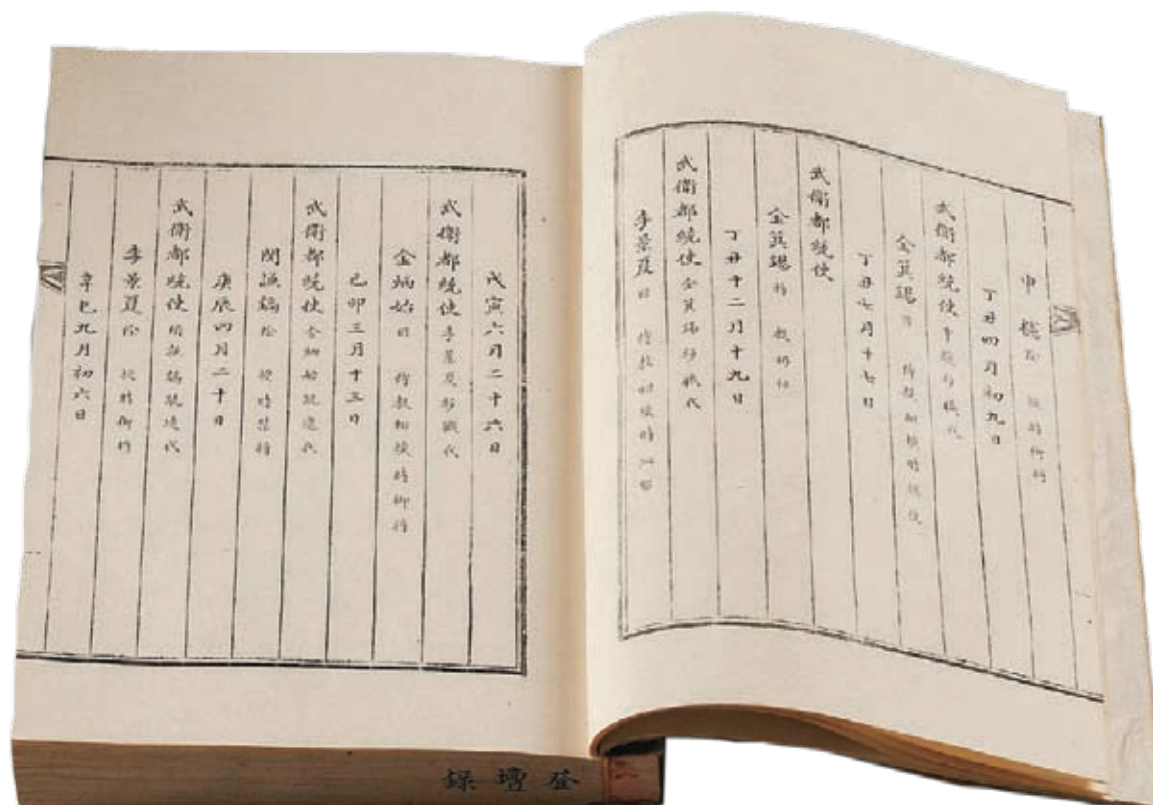 申櫶
丁丑四月初九日
武衛都統使 申櫶移職代
金箕錫
丁丑七月十七日
武衛都統使
金箕錫
丁丑十二月十九日
武衛都統使 金箕錫移職代
李景夏
戊寅六月二十六日
武衛都統使 李景夏移職代
金炳始
己卯三月十三日
武衛都統使 金炳始疏遞代
閔謙鎬 除 授時禁將
庚辰四月二十日
武衛都統使 閔謙鎬疏遞代
李景夏 除 授時御將
辛巳九月初六日
登壇錄